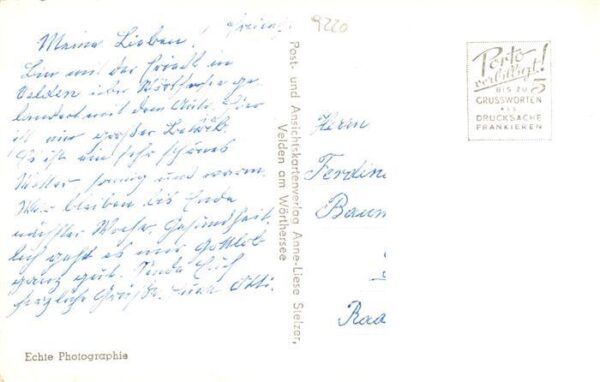 Freitag
9220
Meine Lieben!
Bin mit der Friedl in
Velden über Wörthersee ge
landet mit dem Auto. Hier
ist ein großer Betrieb.
Es ist ein sehr schönes
Wetter sonnig und warm.
Wir bleiben bis Ende
nächster Woche. Gesundheit
lich geht es mir Gottlob
ganz gut. Sende Euch
herzliche Grüße
Echte Photographie
Post- und Ansichtskartenverlag Anne-Liese Stelzer,
Velden am Wörthersee
Porto
verbilligt!
BIS ZU 5
GRUSSWORTEN
ALS
DRUCKSACHE
FRANKIEREN
Herrn
Ferdin
Baum
Raa